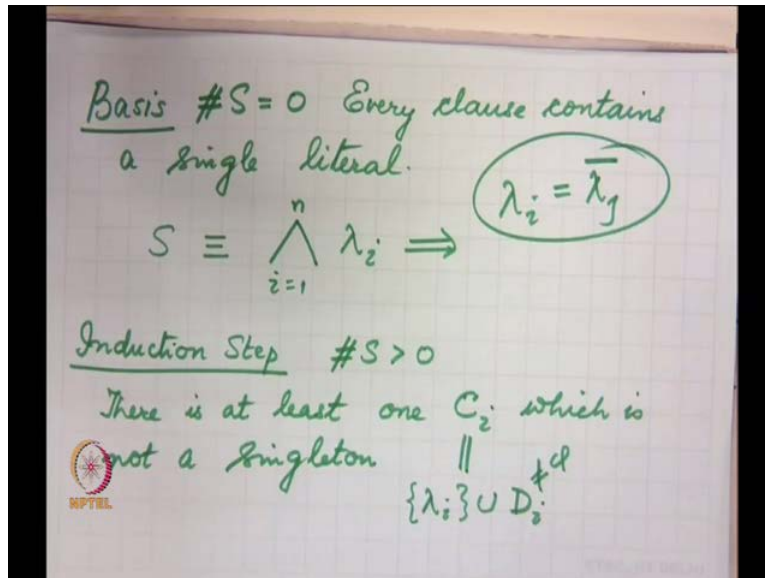 Basis #S = 0 Every clause contains
a single literal.
λᵢ = λ̅ⱼ
n
S ≡ ⋀ λᵢ ⟹
i=1
Induction Step #S > 0
There is at least one Cᵢ which is
not a singleton ||
{λᵢ} ∪ Dᵢ ≠ φ
NPTEL